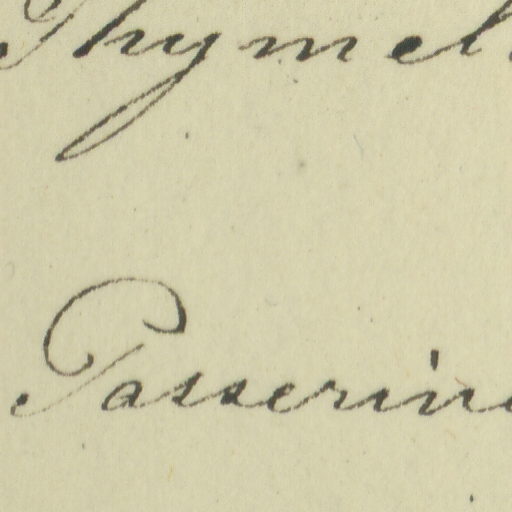 Thymel
Passerin